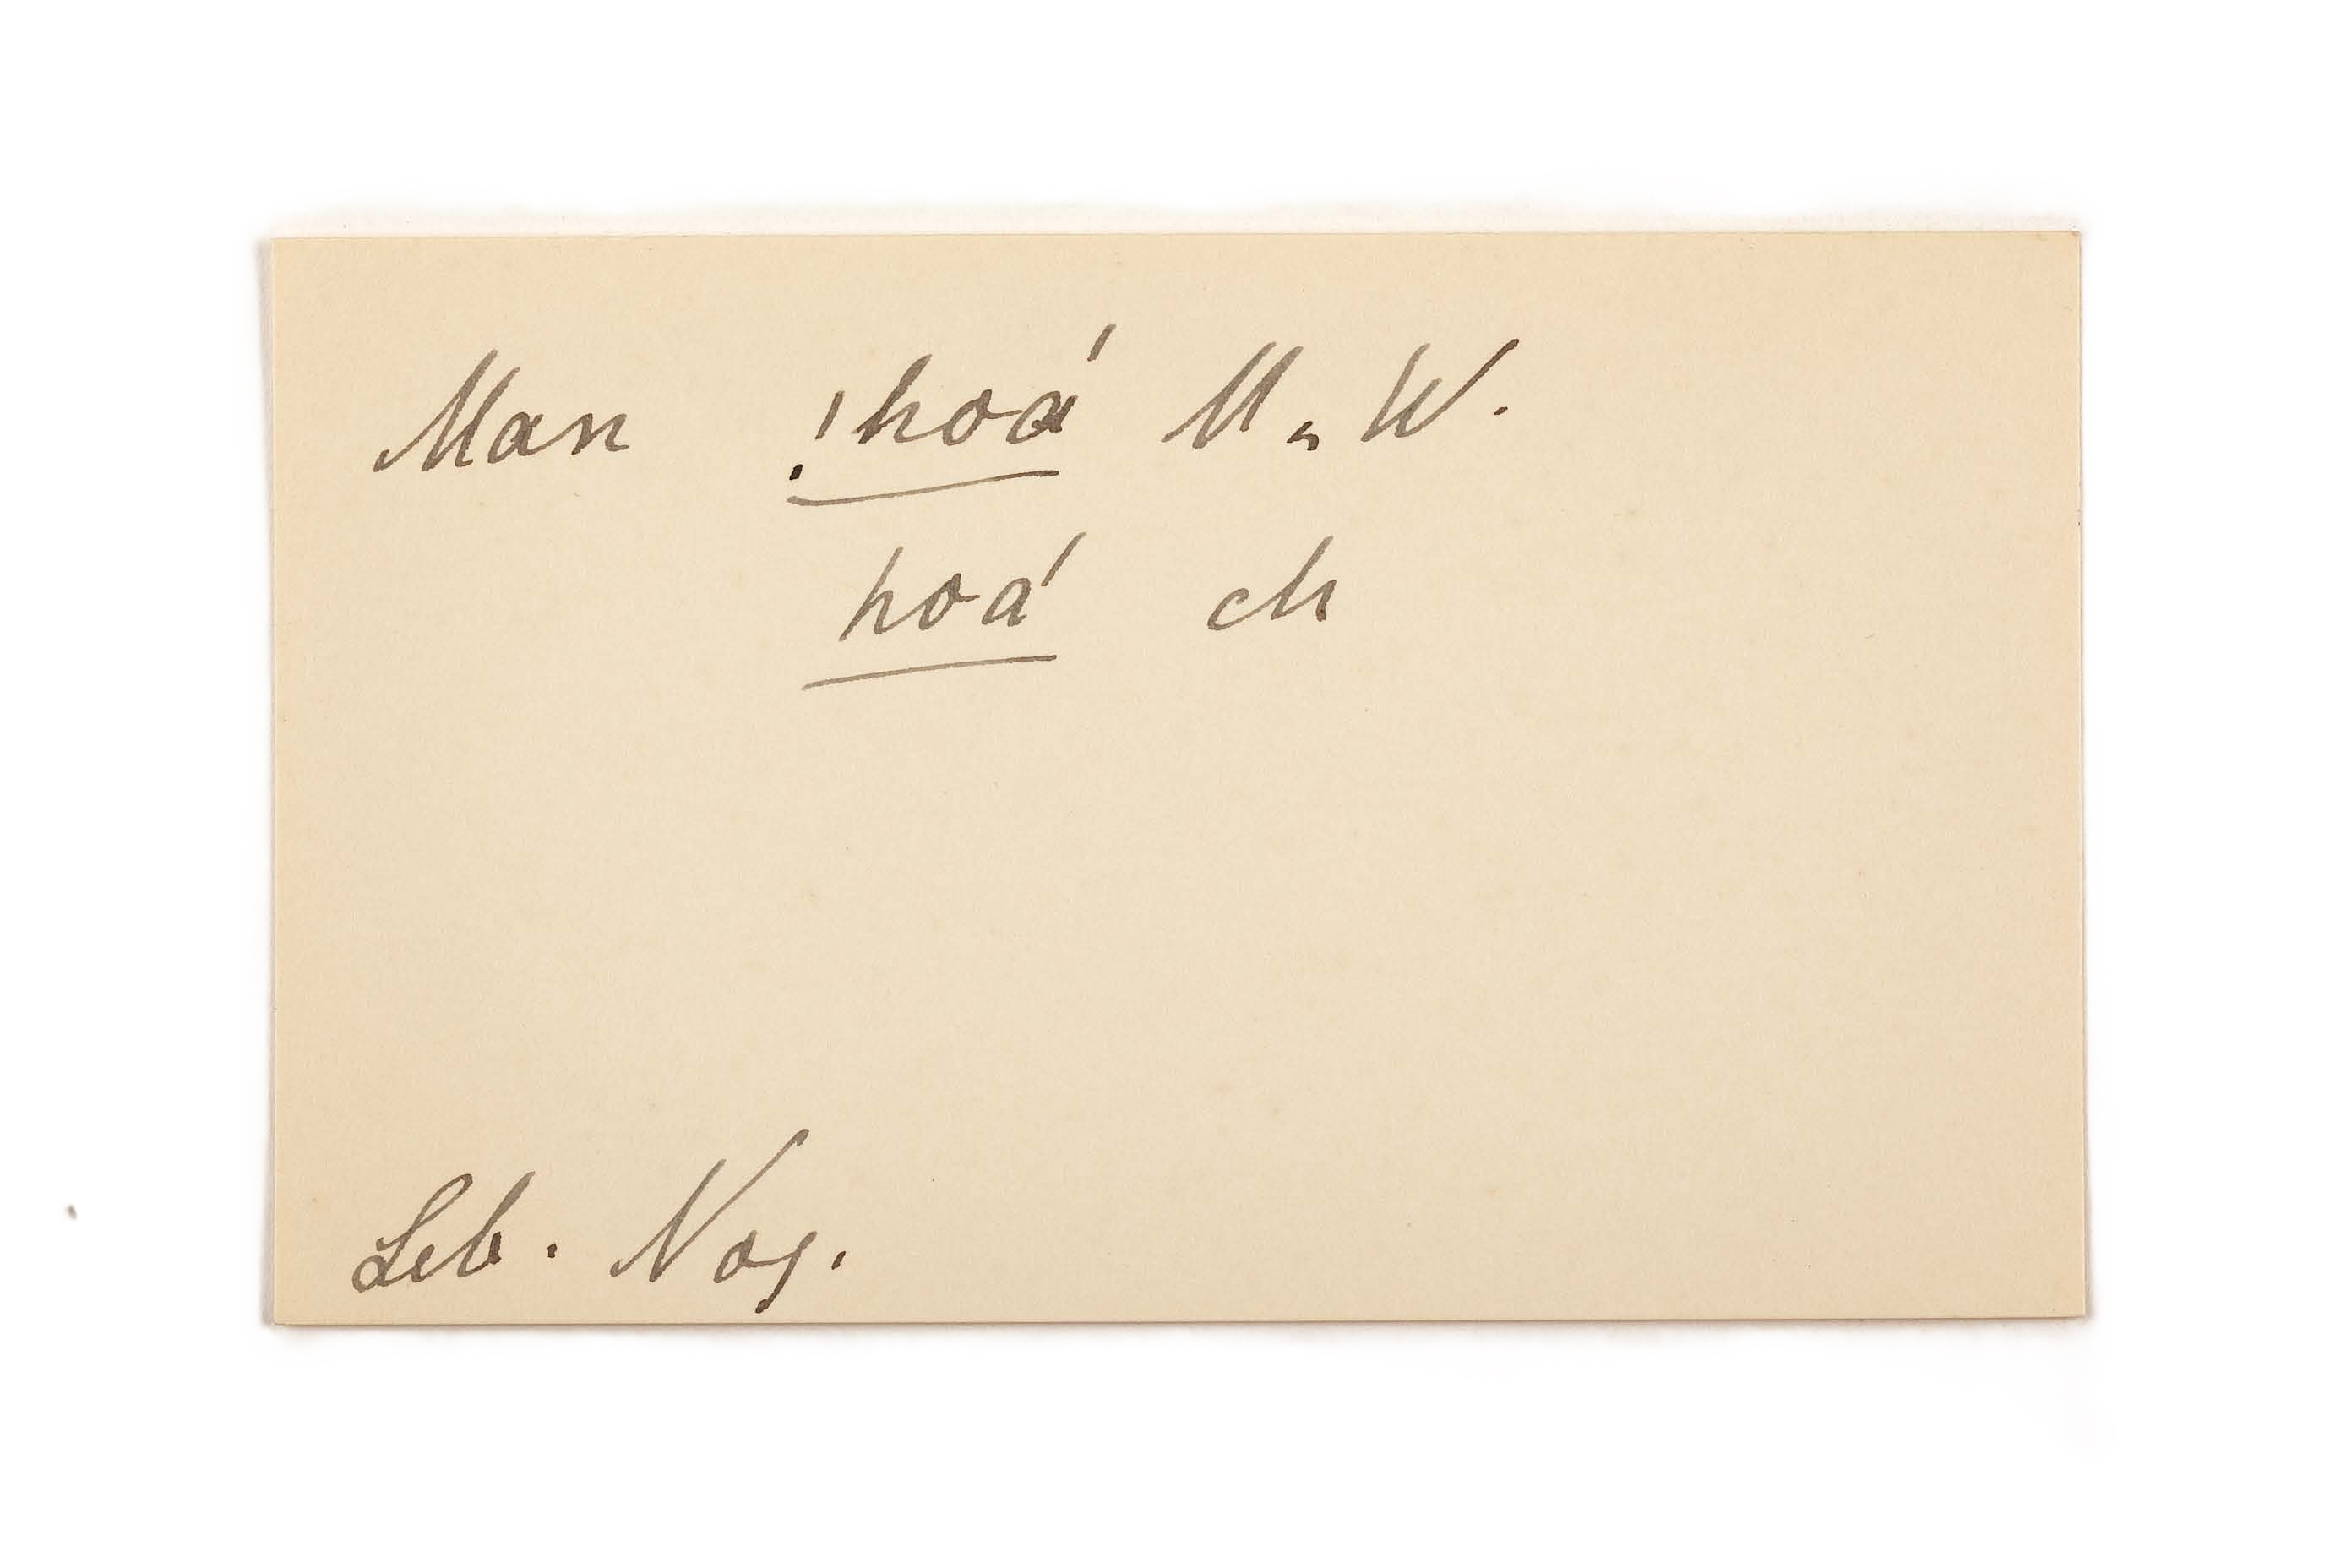 Man !hoá M. W.
hoá ch
Leb. Nog.